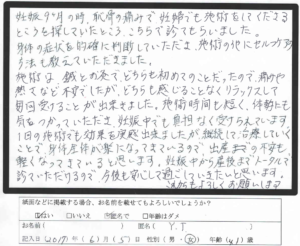 妊娠9ヶ月の時、恥骨の痛みで妊婦でも施術をしてくださる
ところを探していたところ、こちらで診てもらいました。
身体の症状を的確に判断していただき、施術の他にセルフケアの
方法も教えていただきました。
施術は、鍼とお灸で、どちらも初めてのことだったので、痛みや
熱さなど不安でしたが、どちらも感じることなくリラックスして
毎回受けることが出来ました。施術時間も短く、体勢も
気をつかっていただき、妊娠中でも負担なく受けられています。
1回の施術でも効果を実感出来ましたが、継続して治療していく
ことで、身体全体が楽になってきているので、出産までの不安も
軽くなってきていると思います。妊娠中から産後までトータルで
診ていただけるので、今後も安心して過ごしていきたいと思います。
よろしくお願いします
紙面などに掲載する場合、お名前を載せてもよろしいでしょうか？
はい □いいえ 匿名で □年齢はダメ
匿名 Y.T
記入日 2017年（6）月（5）日 性別（男・女） 年齢（41）歳